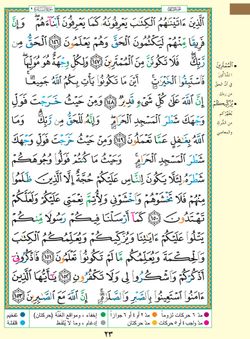 ٱلَّذِينَ ءَاتَيْنَـٰهُمُ ٱلْكِتَـٰبَ يَعْرِفُونَهُۥ كَمَا يَعْرِفُونَ أَبْنَآءَهُمْ ۖ وَإِنَّ
فَرِيقًا مِّنْهُمْ لَيَكْتُمُونَ ٱلْحَقَّ وَهُمْ يَعْلَمُونَ ١٤٦ ٱلْحَقُّ مِن
رَّبِّكَ ۖ فَلَا تَكُونَنَّ مِنَ ٱلْمُمْتَرِينَ ١٤٧ وَلِكُلٍّ وِجْهَةٌ هُوَ مُوَلِّيهَا ۖ
فَٱسْتَبِقُوا۟ ٱلْخَيْرَٰتِ ۚ أَيْنَ مَا تَكُونُوا۟ يَأْتِ بِكُمُ ٱللَّهُ جَمِيعًا ۚ
إِنَّ ٱللَّهَ عَلَىٰ كُلِّ شَىْءٍ قَدِيرٌ ١٤٨ وَمِنْ حَيْثُ خَرَجْتَ فَوَلِّ وَجْهَكَ
شَطْرَ ٱلْمَسْجِدِ ٱلْحَرَامِ ۖ وَإِنَّهُۥ لَلْحَقُّ مِن رَّبِّكَ ۗ وَمَا ٱللَّهُ
بِغَـٰفِلٍ عَمَّا تَعْمَلُونَ ١٤٩ وَمِنْ حَيْثُ خَرَجْتَ فَوَلِّ وَجْهَكَ
شَطْرَ ٱلْمَسْجِدِ ٱلْحَرَامِ ۚ وَحَيْثُ مَا كُنتُمْ فَوَلُّوا۟ وُجُوهَكُمْ
شَطْرَهُۥ لِئَلَّا يَكُونَ لِلنَّاسِ عَلَيْكُمْ حُجَّةٌ إِلَّا ٱلَّذِينَ ظَلَمُوا۟
مِنْهُمْ فَلَا تَخْشَوْهُمْ وَٱخْشَوْنِى وَلِأُتِمَّ نِعْمَتِى عَلَيْكُمْ وَلَعَلَّكُمْ
تَهْتَدُونَ ١٥٠ كَمَآ أَرْسَلْنَا فِيكُمْ رَسُولًا مِّنكُمْ
يَتْلُوا۟ عَلَيْكُمْ ءَايَـٰتِنَا وَيُزَكِّيكُمْ وَيُعَلِّمُكُمُ ٱلْكِتَـٰبَ
وَٱلْحِكْمَةَ وَيُعَلِّمُكُم مَّا لَمْ تَكُونُوا۟ تَعْلَمُونَ ١٥١ فَٱذْكُرُونِىٓ
أَذْكُرْكُمْ وَٱشْكُرُوا۟ لِى وَلَا تَكْفُرُونِ ١٥٢ يَـٰٓأَيُّهَا ٱلَّذِينَ
ءَامَنُوا۟ ٱسْتَعِينُوا۟ بِٱلصَّبْرِ وَٱلصَّلَوٰةِ ۚ إِنَّ ٱللَّهَ مَعَ ٱلصَّـٰبِرِينَ ١٥٣
مدّ ٦ حركات لزوماً مدّ ٢ أو ٤ أو ٦ جوازاً إخفاء، ومواقع الغُنّة (حركتان) تفخيم
مدّ واجب ٤ أو ٥ حركات مدّ حركتان إدغام، وما لا يُلفظ قلقلة
٢٣